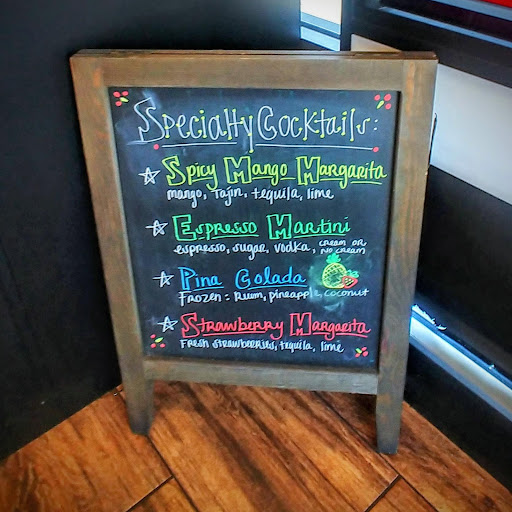 Specialty Cocktails:
Spicy Mango Margarita
mango, Tajin, tequila, lime
Espresso Martini
espresso, sugar, vodka, cream or
no cream
Pina Colada
Frozen: Rum, pineapple, coconut
Strawberry Margarita
Fresh strawberries, tequila, lime